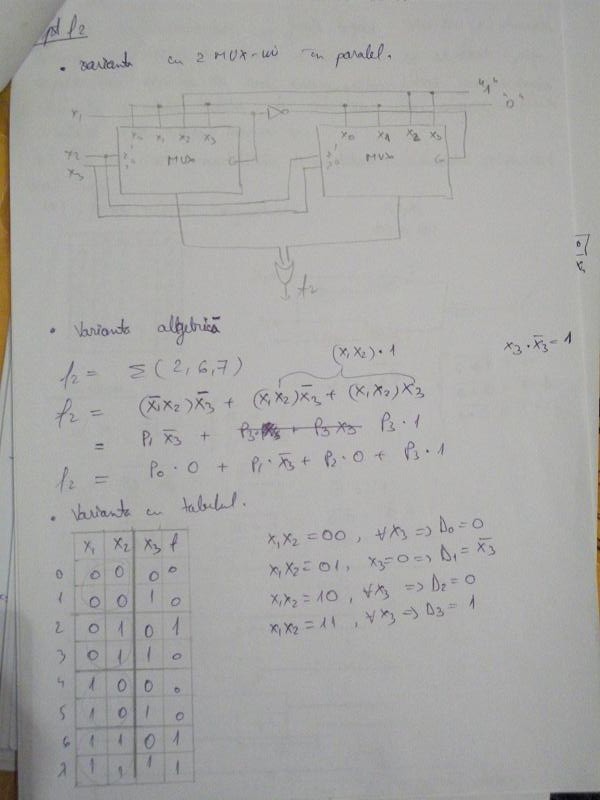 pt f2
• varianta cu 2 MUX-uri în paralel.
"1"
"0"
x1
x0 x1 x2 x3
x0 x1 x2 x3
x2
x3
MUX
G
MUX
G
f2
• Varianta algebrică
(x1x2)·1
x3·x̄3=1
f2 = Σ(2,6,7)
f2 = (x̄1x2)x̄3 + (x1x2)x̄3 + (x1x2)x3
= P1 x̄3 + P3·1
f2 = P0·0 + P1·x̄3 + P2·0 + P3·1
• Varianta cu tabelul.
x1 x2 x3 f
0 0 0 0 0
1 0 0 1 0
2 0 1 0 1
3 0 1 1 0
4 1 0 0 0
5 1 0 1 0
6 1 1 0 1
7 1 1 1 1
x1x2=00, ∀x3 => D0=0
x1x2=01, x3=0 => D1=x̄3
x1x2=10, ∀x3 => D2=0
x1x2=11, ∀x3 => D3=1